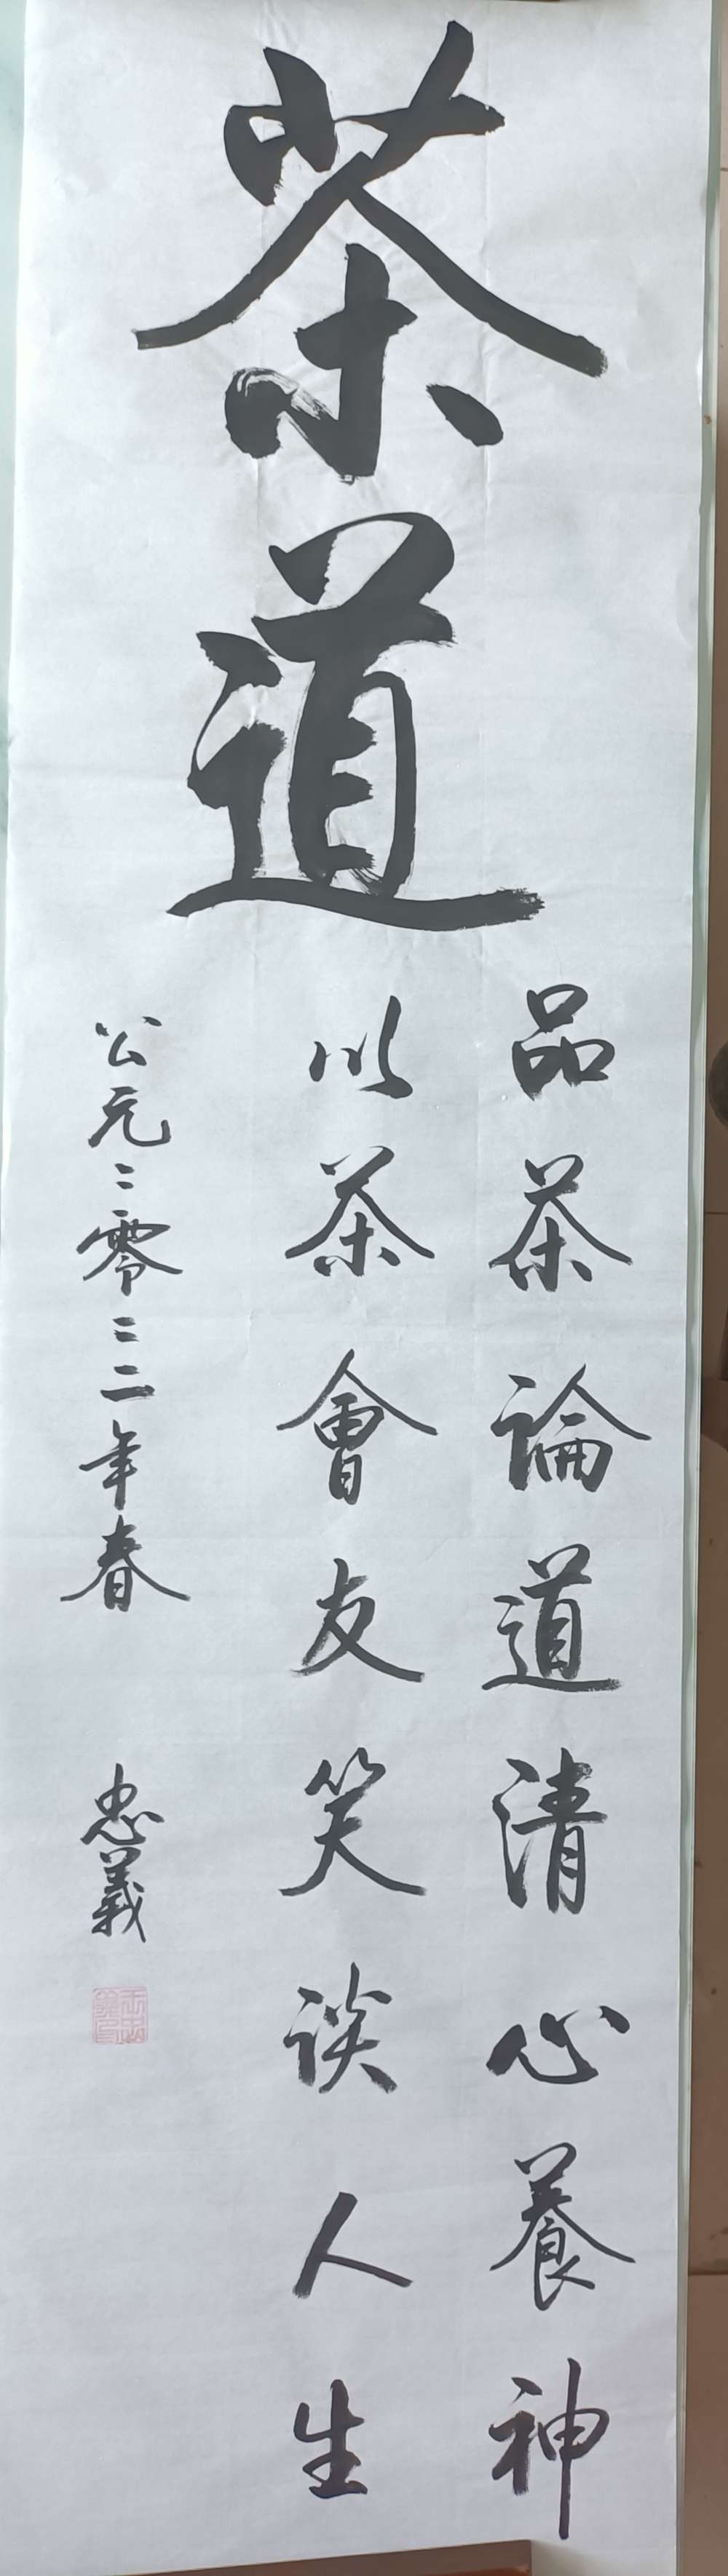 茶道
品茶論道清心養神
以茶會友笑谈人生
公元二零二二年春
忠義